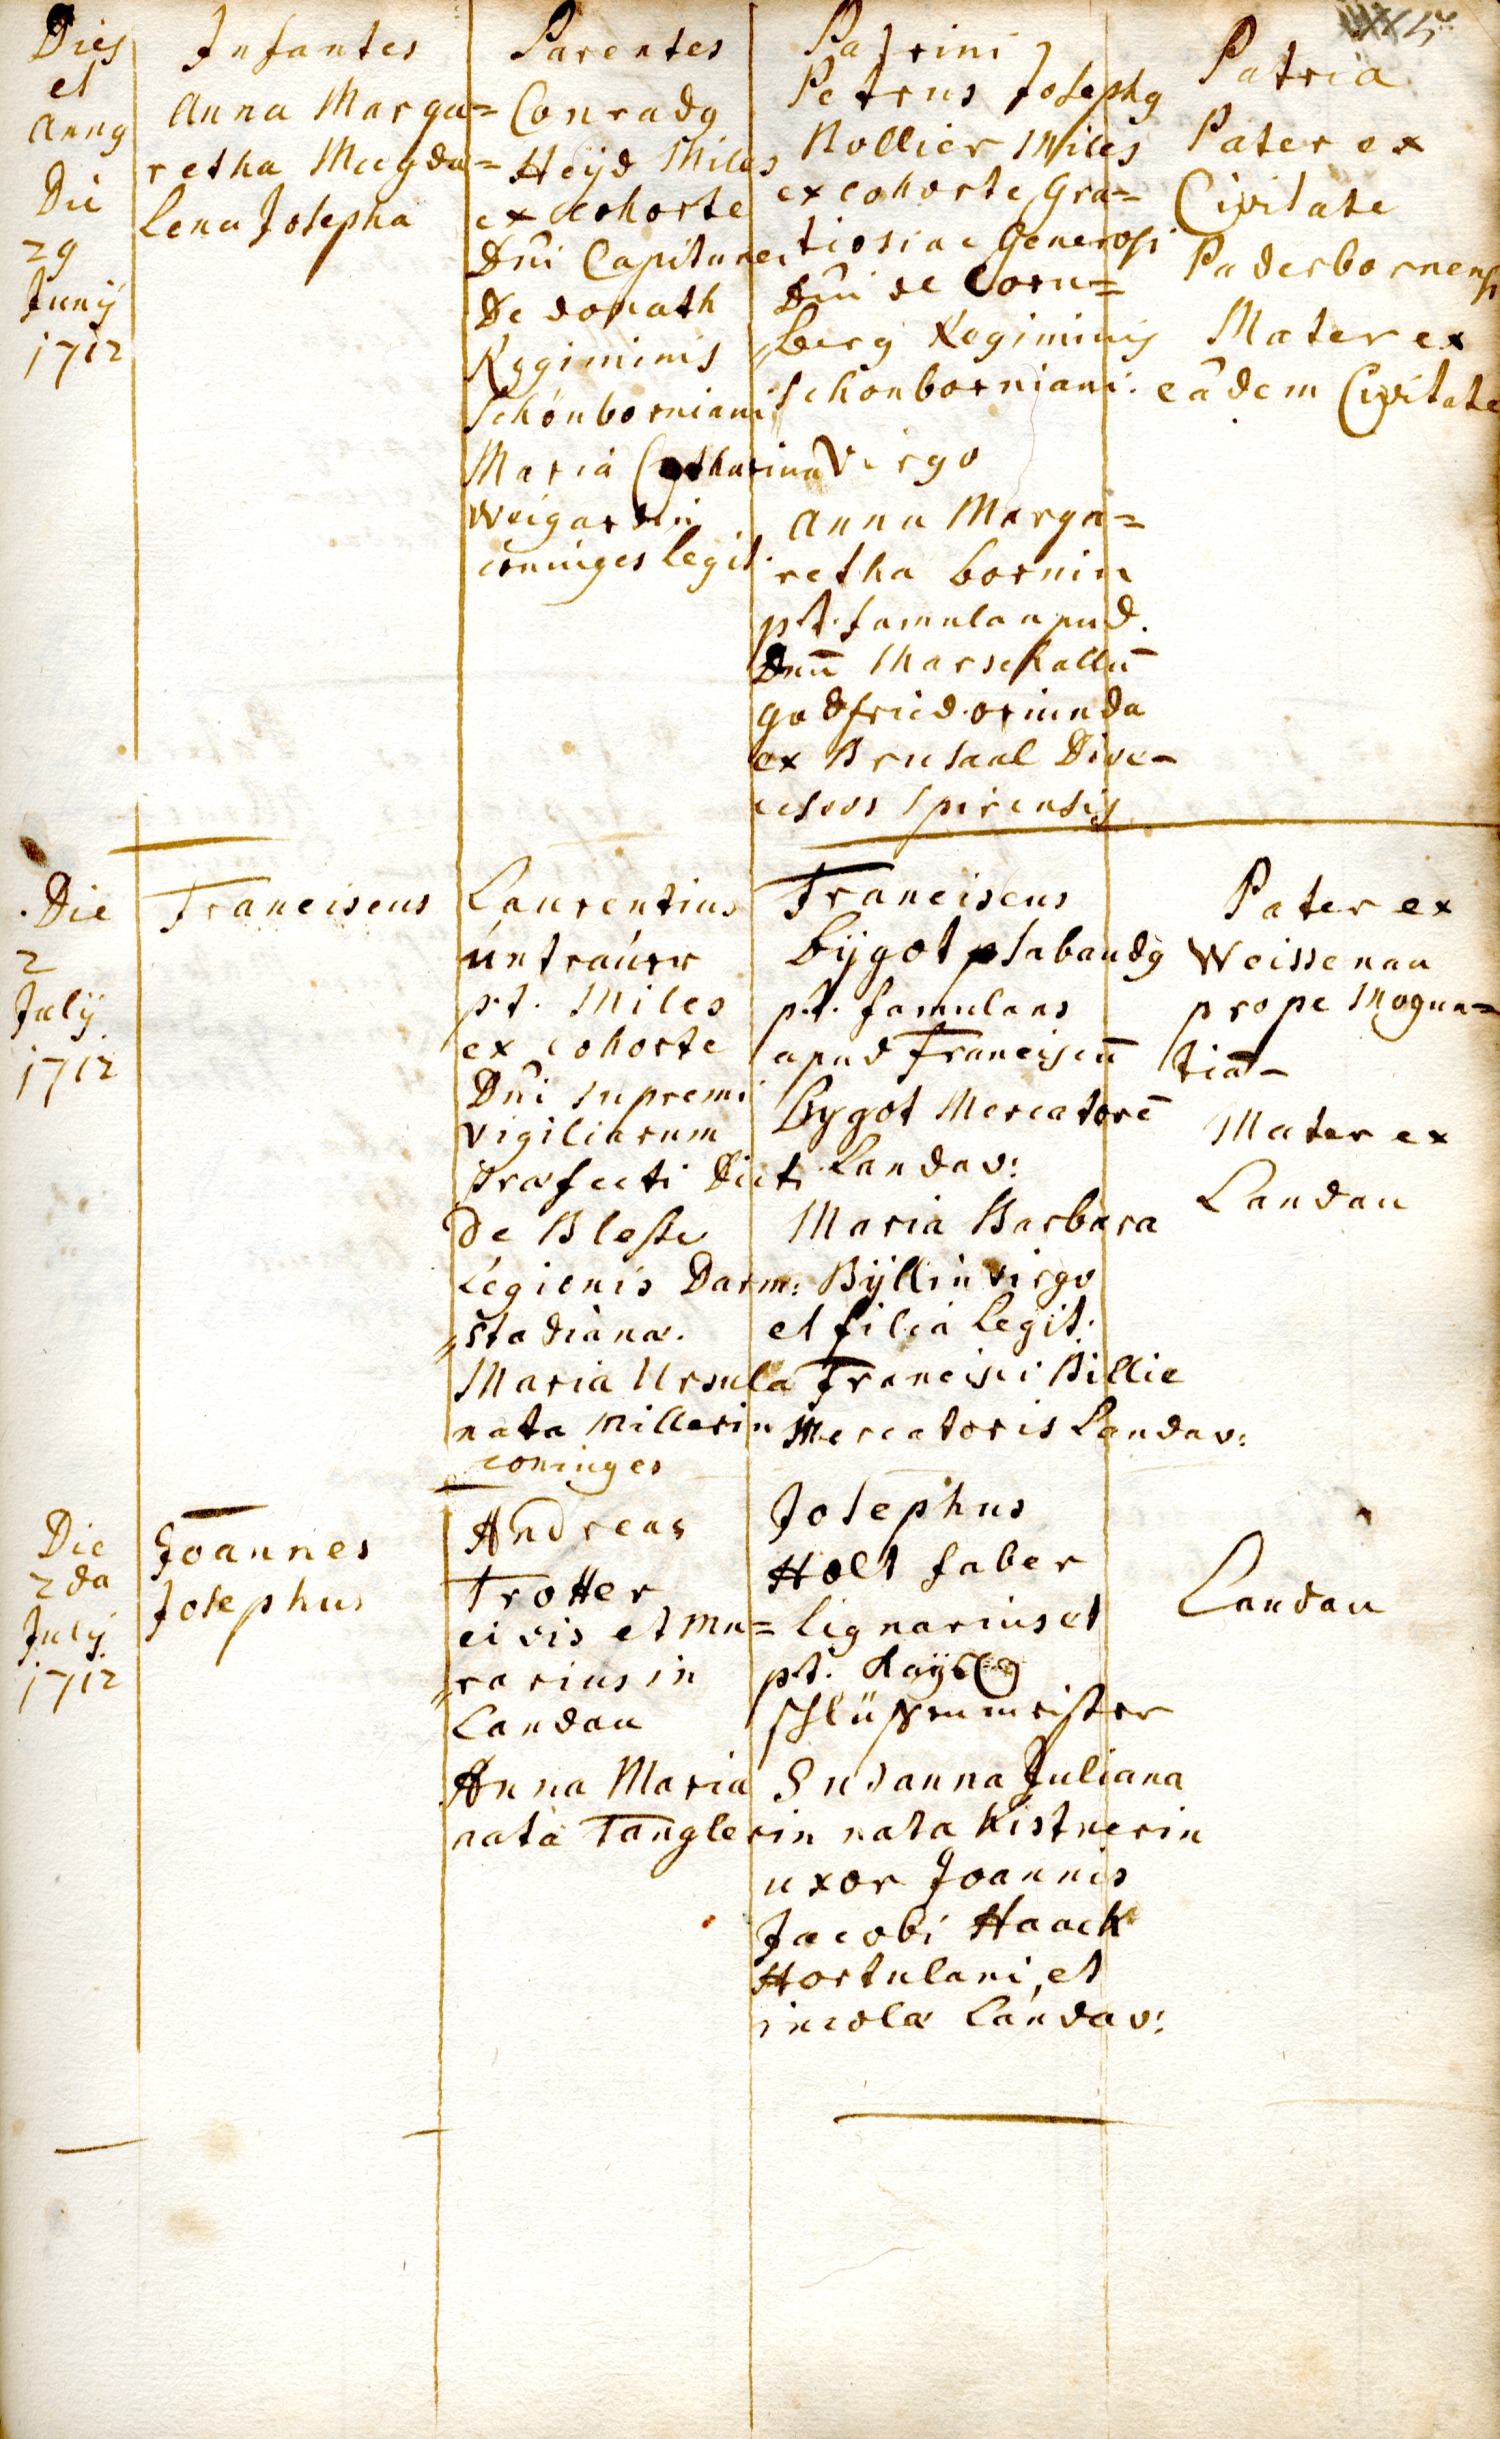 Dies
et
Anng
Infantes
Parentes
Patrini
Patria
Die
29
Junÿ
1712
Anna Marga=
retha Magda=
lena Josepha
Conradg
Heÿd Miles
ex cohorte
Dni Capitanei
De donath
Regiminis
Schönborniani
Maria Catharina
Weigardin
coniuges legit.
Petrus Josephg
Nollier Miles
ex cohorte Gra=
tiosi ac Generosi
Dni de Corn=
berg Regiminis
schonborniani.
Virgo
Anna Marga=
retha bornin
p.t. famula apud.
Dnū Marschallū
godfried. oriunda
ex Brusaal Dioe-
ceseos Spirensis
Pater ex
Civitate
Paderbornensi
Mater ex
eâdem Civitate
Die
2
Julÿ
1712
Franciscus
Laurentius
untraúer
p.t. Miles
ex cohorte
Dni supremi
vigiliarum
præfecti Dicti
De Bleste
Legionis Darm:
stadianæ.
Maria Ursula
nata Millerin
coniuges
Franciscus
bÿgot sabaudg
p.t. famulans
apud Franciscū
bygot Mercatorē
Landav:
Maria Barbara
Bÿllin virgo
et filia Legit:
Francisci Billie
Mercatoris Landav:
Pater ex
Weissenau
prope Mogun=
tiā
Mater ex
Landau
Die
2da
July
1712
Joannes
Josephus
Andreas
Trotter
civis et mu=
rarius in
Landau
Anna Maria
nata Tanglerin
Josephus
Holt faber
lignarius et
p.t. Kaÿsl
schlüssenmeister
Susanna Juliana
nata Kistnerin
uxor Joannis
Jacobi Haack
Hortulani, et
incolæ Landav:
Landau